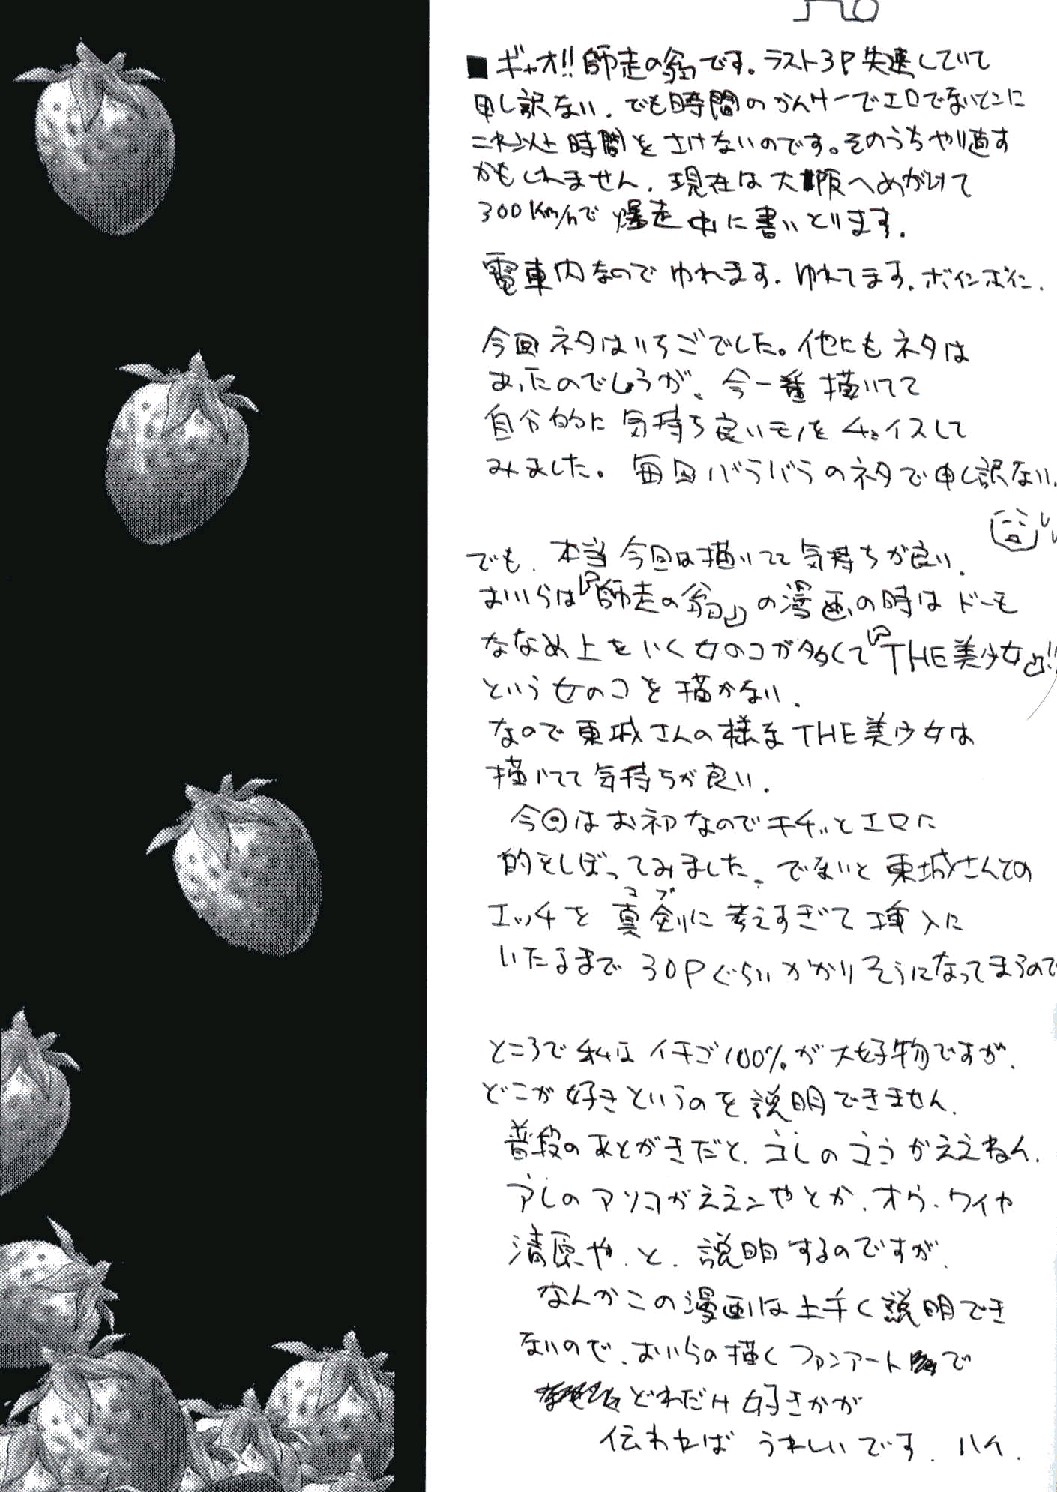 ■ギャオ!!師走の翁です。ラスト3P失速していて
申し訳ない。でも時間のかんけーでエロでないとこに
これ以上時間をさけないのです。そのうちやり直す
かもしれません。現在は大阪へめがけて
300Km/hで爆走中に書いとります。
電車内なのでゆれます。ゆれてます。ボインボイン。
今回ネタはいちごでした。他にもネタは
あったのでしょうが、今一番描いてて
自分的に気持ち良いモノをチョイスして
みました。毎回バラバラのネタで申し訳ない。
でも、本当今回は描いてて気持ちが良い。
おいらは『師走の翁』の漫画の時はドーモ
ななめ上をいく女のコが多くて『THE美少女』!!
という女のコを描かない。
なので東城さんの様なTHE美少女は
描いてて気持ちが良い。
今回はお初なのでキチッとエロに
的をしぼってみました。でないと東城さんでの
エッチを真剣に考えすぎて挿入に
マブ
いたるまで30Pぐらいかかりそうになってまうので
ところで私はイチゴ100%が大好物ですが、
どこが好きというのを説明できません。
普段のあとがきだと、コレのココがええねん、
アレのアソコがええンやとか、オウ、ワイや
清原や、と、説明するのですが、
なんかこの漫画は上手く説明でき
ないので、おいらの描くファンアートで
どれだけ好きかが
伝わればうれしいです、ハイ。